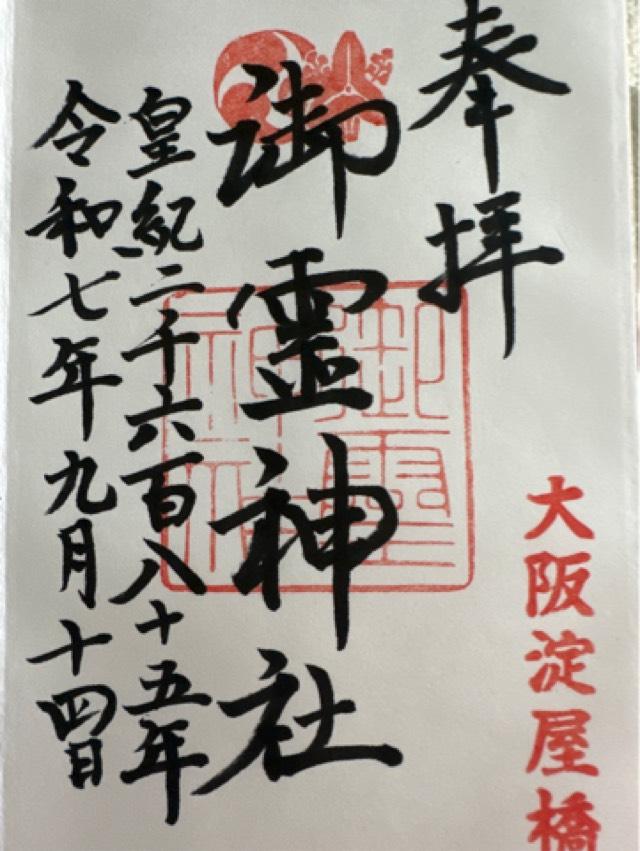 奉拝
大阪淀屋橋
御霊神社
皇紀二千六百八十五年
令和七年九月十四日
御霊神社